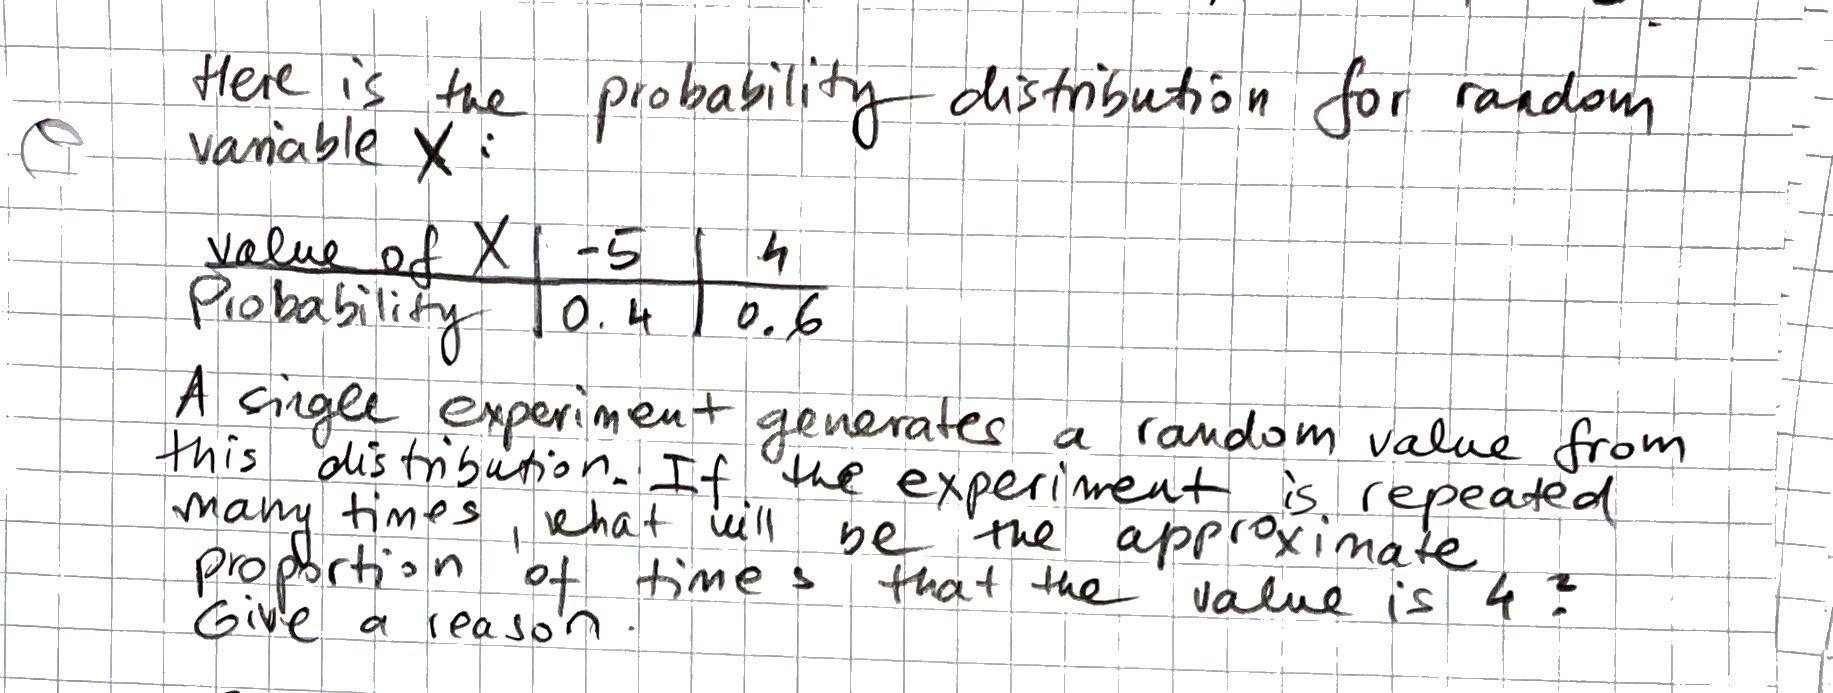 Here is the probability distribution for random
variable X:
value of X | -5 | 4
Probability | 0.4 | 0.6
A single experiment generates a random value from
this distribution. If the experiment is repeated
many times, what will be the approximate
proportion of times that the value is 4?
Give a reason.